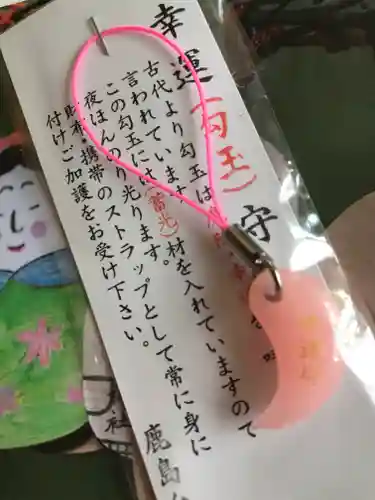 幸運(勾玉)守
古代より勾玉は
言われています。
この勾玉には(蓄光)材を入れていますので
夜ほんのり光ります。
財布、携帯のストラップとして常に身に
付けご加護をお受け下さい。
鹿島
社